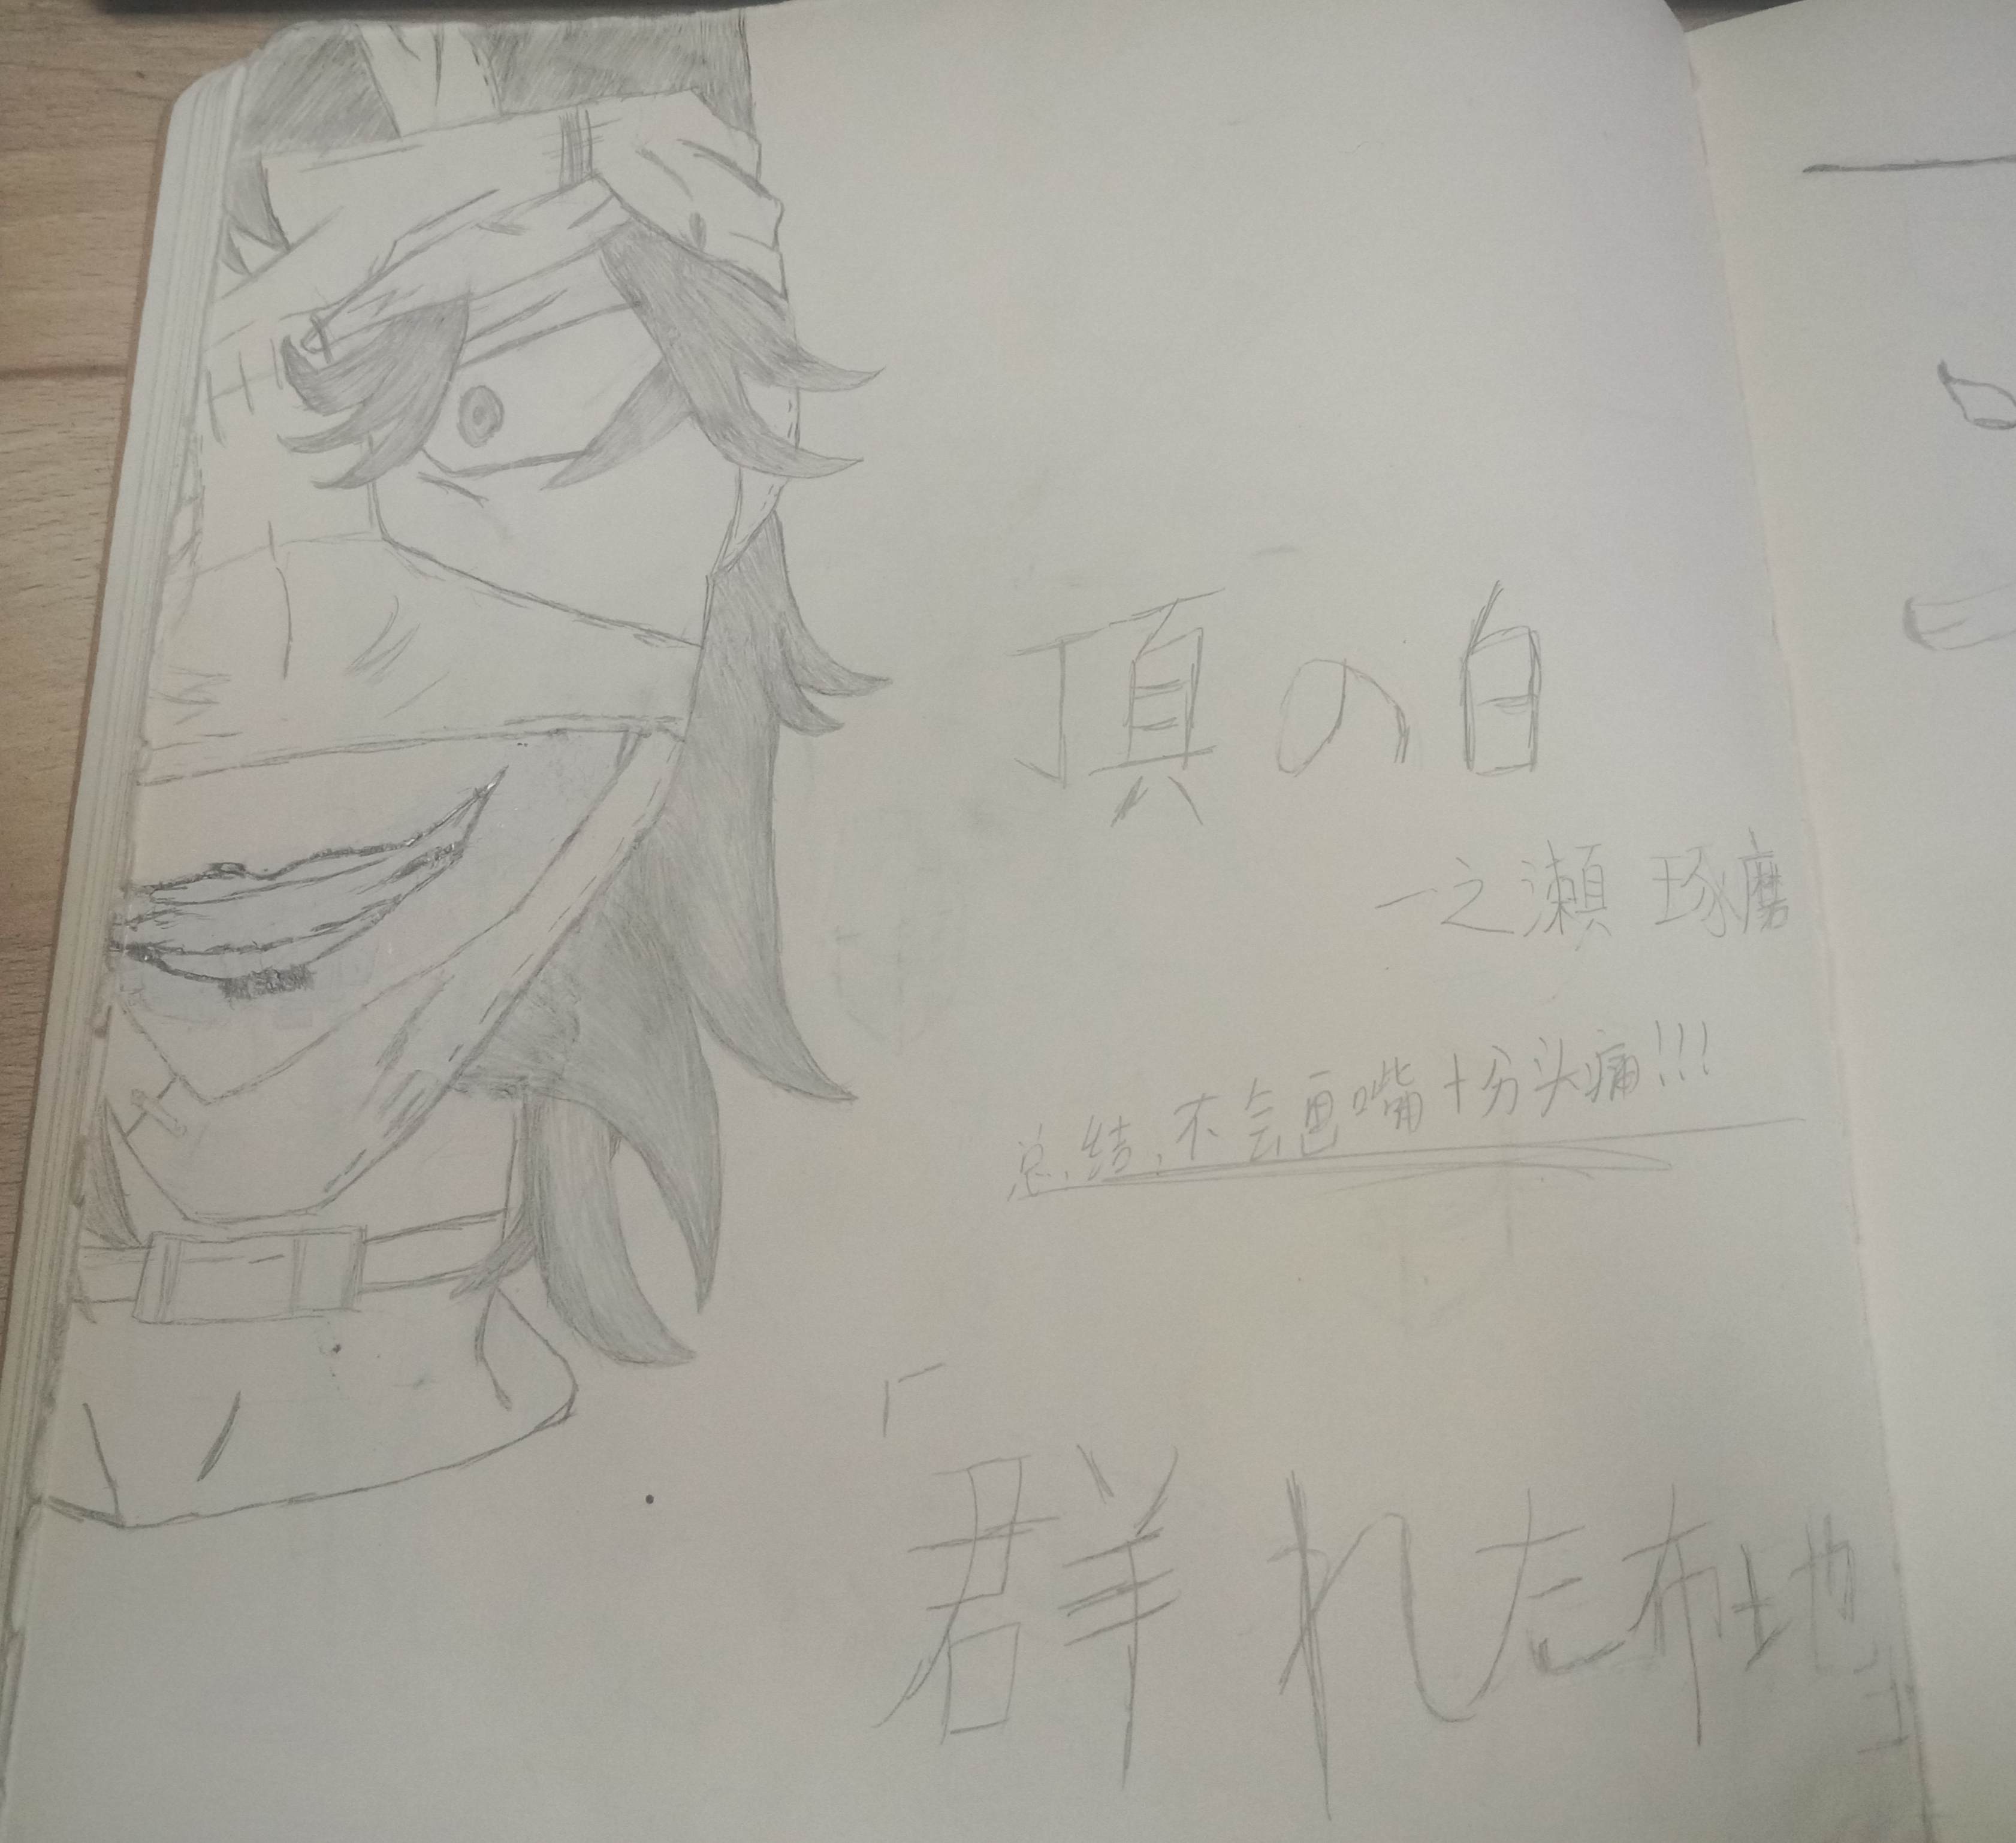 頂の白
一之瀬 琢磨
总结,不会画嘴十分头痛!!!
「群れた布地」